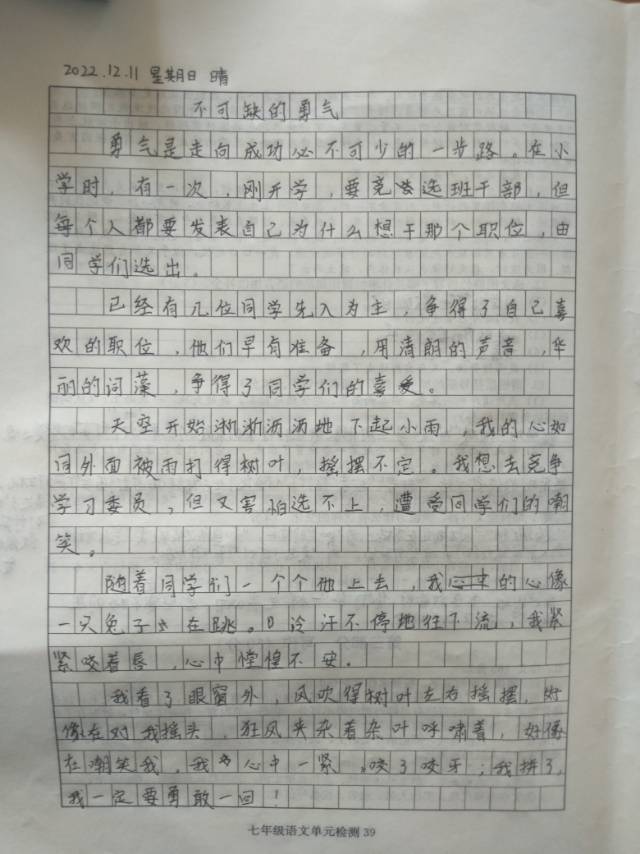 2022.12.11 星期日 晴
不可缺的勇气
勇气是走向成功必不可少的一步路。在小
学时，有一次，刚开学，要竞选班干部，但
每个人都要发表自己为什么想干那个职位，由
同学们选出。
已经有几位同学先入为主，争得了自己喜
欢的职位，他们早有准备，用清朗的声音，华
丽的词藻，争得了同学们的喜爱。
天空开始淅淅沥沥地下起小雨，我的心如
同外面被雨打得树叶，摇摆不定。我想去竞争
学习委员，但又害怕选不上，遭受同学们的嘲
笑。
随着同学们一个个地上去，我的心像
一只兔子在跳。冷汗不停地往下流，我紧
紧咬着唇，心中惶惶不安。
我看了眼窗外，风吹得树叶左右摇摆，好
像在对我摇头，狂风夹杂着杂叶呼啸着，好像
在嘲笑我。我心中一紧，咬了咬牙；我拼了，
我一定要勇敢一回！
七年级语文单元检测 39